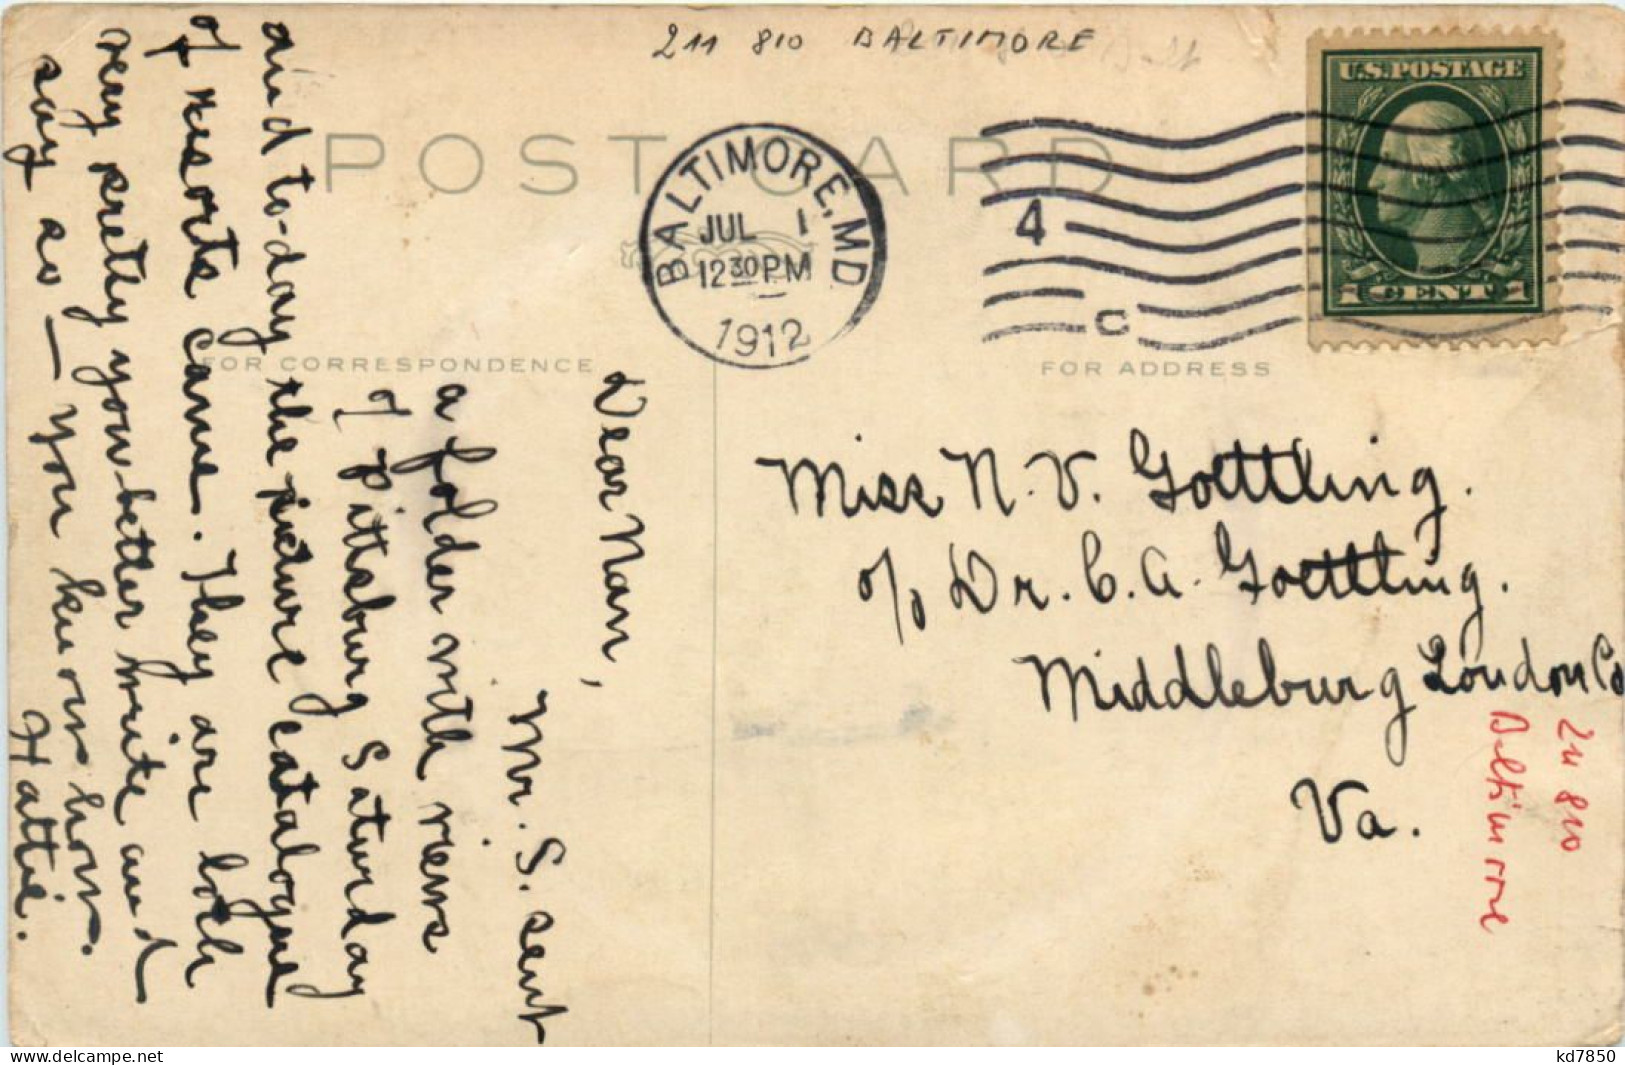 211 810 BALTIMORE
U.S.POSTAGE
1 CENT 1
POST CARD
BALTIMORE, MD
JUL 1
12 30 PM
1912
4
C
FOR CORRESPONDENCE
FOR ADDRESS
Dear Nan,
Mr. S. sent
a folder with views
of Pittsburg Saturday
and to-day the picture catalogue
of resorts came. They are both
very pretty you better write and
say so — you know how.
Hattie.
Miss N. V. Goettling.
c/o Dr. C. A. Goettling.
Middleburg Loudon Co
Va.
211 810
Baltimore
delcampe.net
kd7850